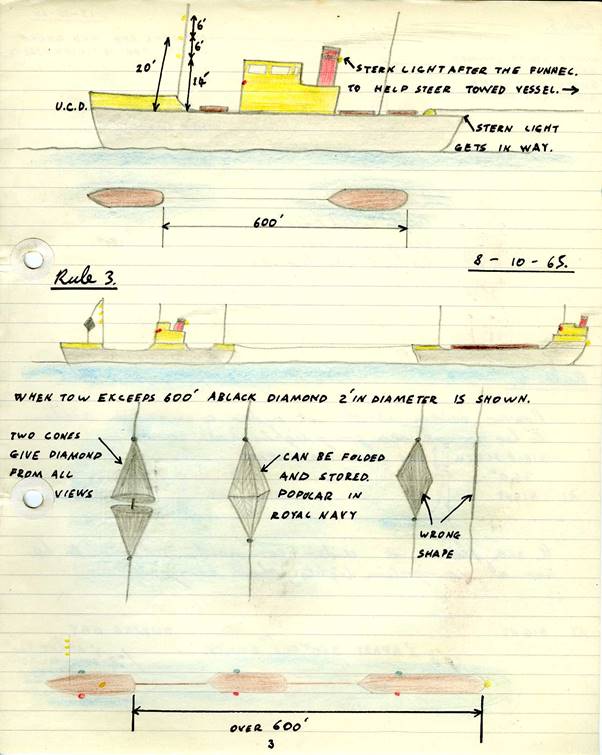 6'
6'
20'
14'
STERN LIGHT AFTER THE FUNNEL.
TO HELP STEER TOWED VESSEL. →
U.C.D.
STERN LIGHT
GETS IN WAY.
600'
8 - 10 - 65.
Rule 3.
WHEN TOW EXCEEDS 600' A BLACK DIAMOND 2' IN DIAMETER IS SHOWN.
TWO CONES
GIVE DIAMOND
FROM ALL
VIEWS
CAN BE FOLDED
AND STORED.
POPULAR IN
ROYAL NAVY
WRONG
SHAPE
OVER 600'
3